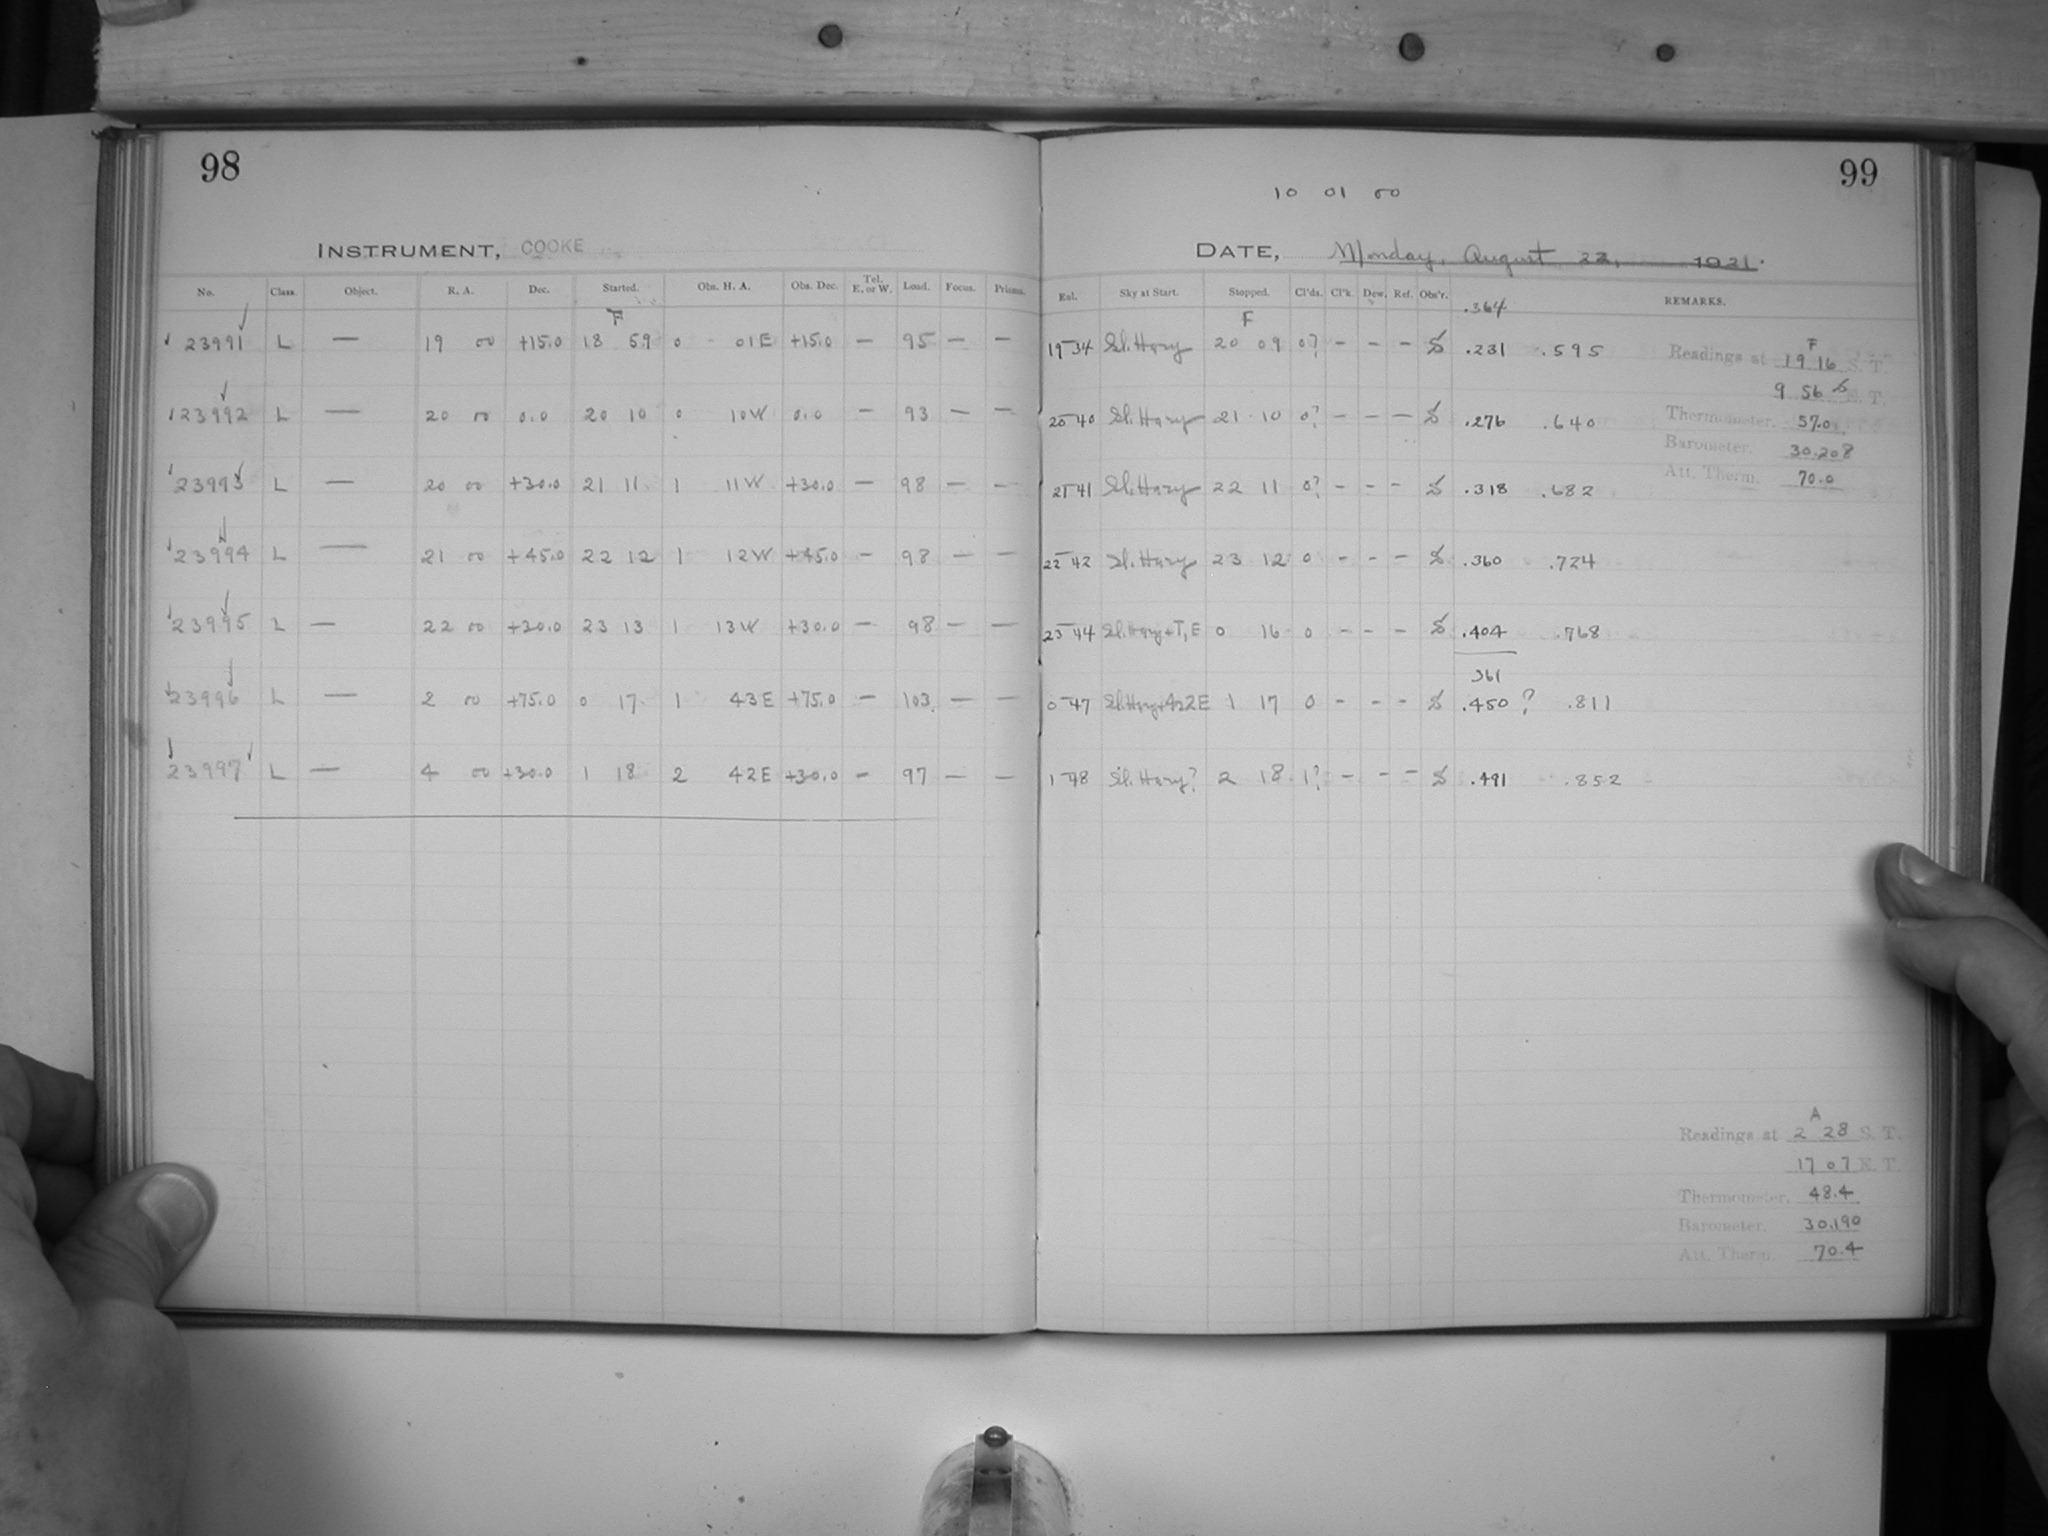 98
INSTRUMENT, COOKE
No. Class. Object. R. A. Dec. Started. Obs. H. A. Obs. Dec. Tel. E. or W. Load. Focus. Prisms.
F
23991 L — 19 00 +15.0 18 59 0 01E +15.0 — 95 — —
23992 L — 20 00 0.0 20 10 0 10W 0.0 — 93 — —
23993 L — 20 00 +30.0 21 11 1 11W +30.0 — 98 — —
23994 L — 21 00 +45.0 22 12 1 12W +45.0 — 98 — —
23995 L — 22 00 +30.0 23 13 1 13W +30.0 — 98 — —
23996 L — 2 00 +75.0 0 17 1 43E +75.0 — 103 — —
23997 L — 4 00 +30.0 1 18 2 42E +30.0 — 97 — —
99
10 01 00
DATE, Monday, August 22, 1921.
Sky at Start. Stopped. Cl'ds. Cl'k. Dew. Ref. Obs'r. REMARKS.
.364
F
19 34 Sl. Hazy 20 09 0? - - - S .231 .595
20 40 Sl. Hazy 21 10 0? - - - S .276 .640
21 41 Sl. Hazy 22 11 0? - - - S .318 .682
22 42 Sl. Hazy 23 12 0 - - - S .360 .724
23 44 Sl. Hazy + T, E 0 16 0 - - - S .404 .768
361
0 47 Sl. Hazy 1 17 0 - - - S .450 ? .811
1 48 Sl. Hazy? 2 18 1? - - - S .491 .852
F
Readings at 19 16 S. T.
9 56 T.
Thermometer. 57.0
Barometer. 30.208
Att. Therm. 70.0
A
Readings at 2 28 S. T.
17 07 E. T.
Thermometer. 48.4
Barometer. 30.190
Att. Therm. 70.4